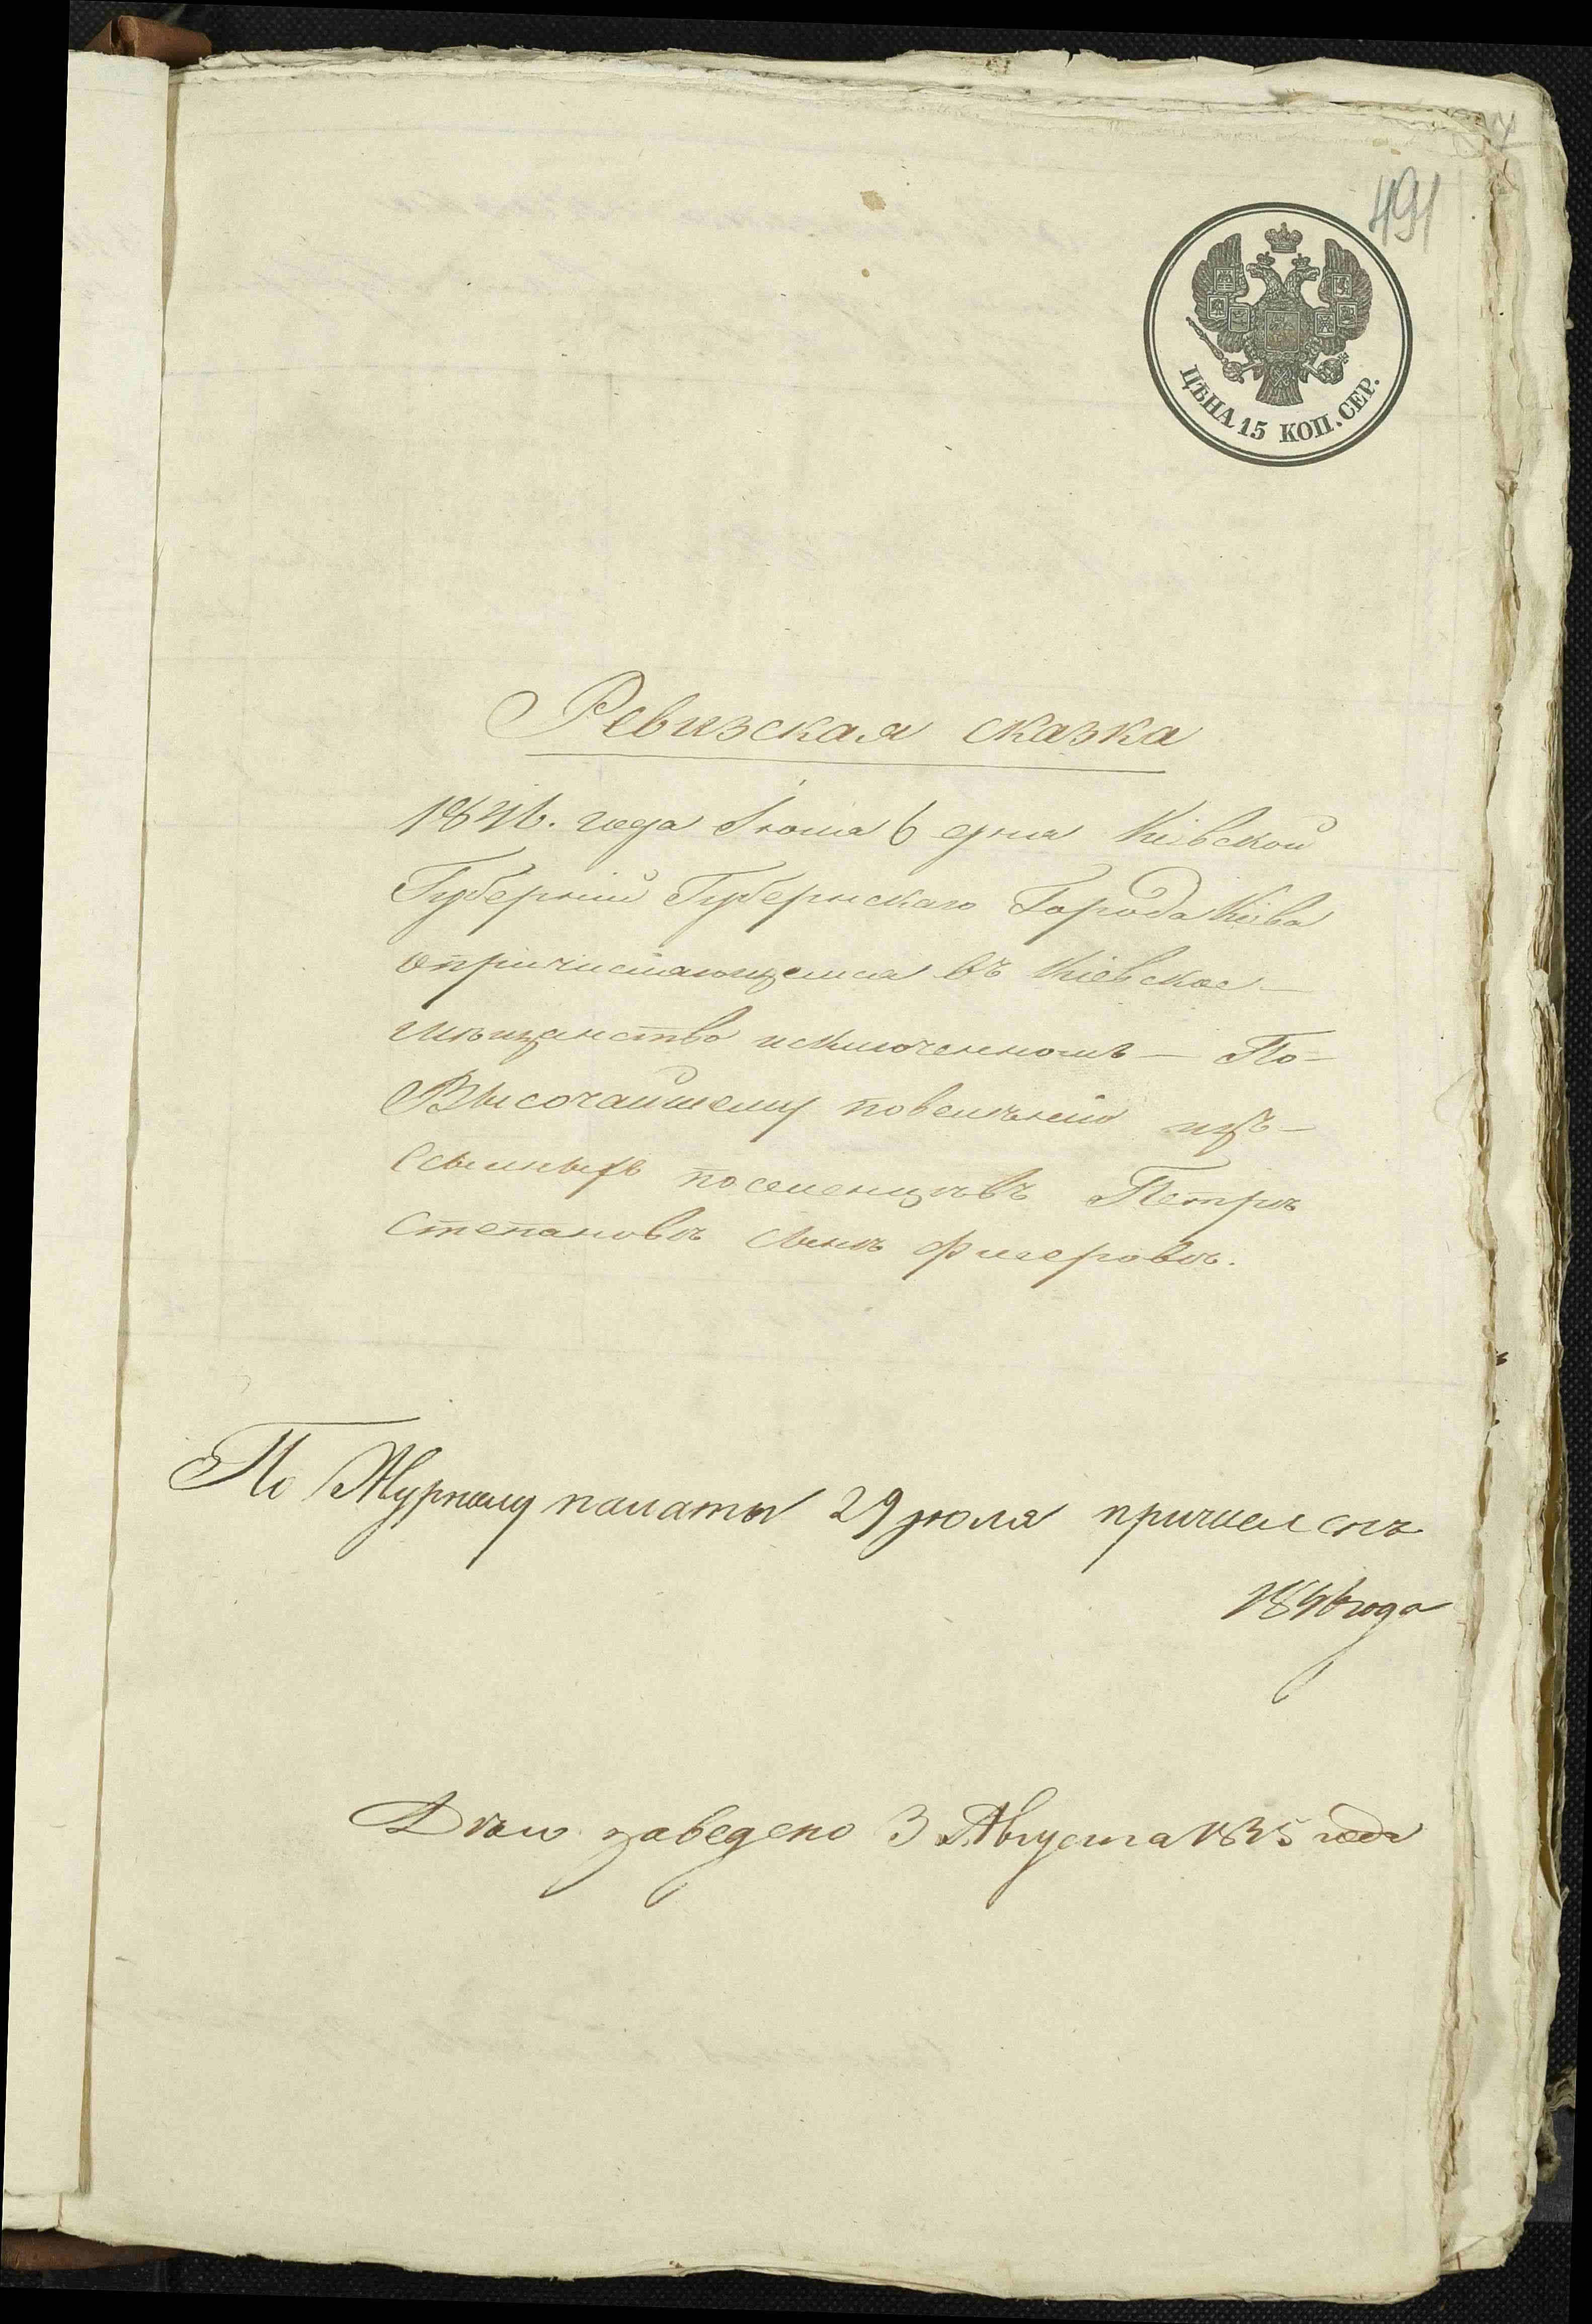 491
ЦѢНА 15 КОП. СЕР.
Ревизская сказка
1846. года Іюня 6 дня Кіевской
Губерніи Губернскаго Города Кіева
опричисляющемся въ Кіевское
мѣщанство исключенномъ По
Высочайшему повелѣнію изъ
Ссыльныхъ поселенцовъ Петръ
Степановъ сынъ Фигеровъ.
По Журналу палаты 29 юля причисленъ
1846 года
Дѣло заведено 3 Августа 1835 года